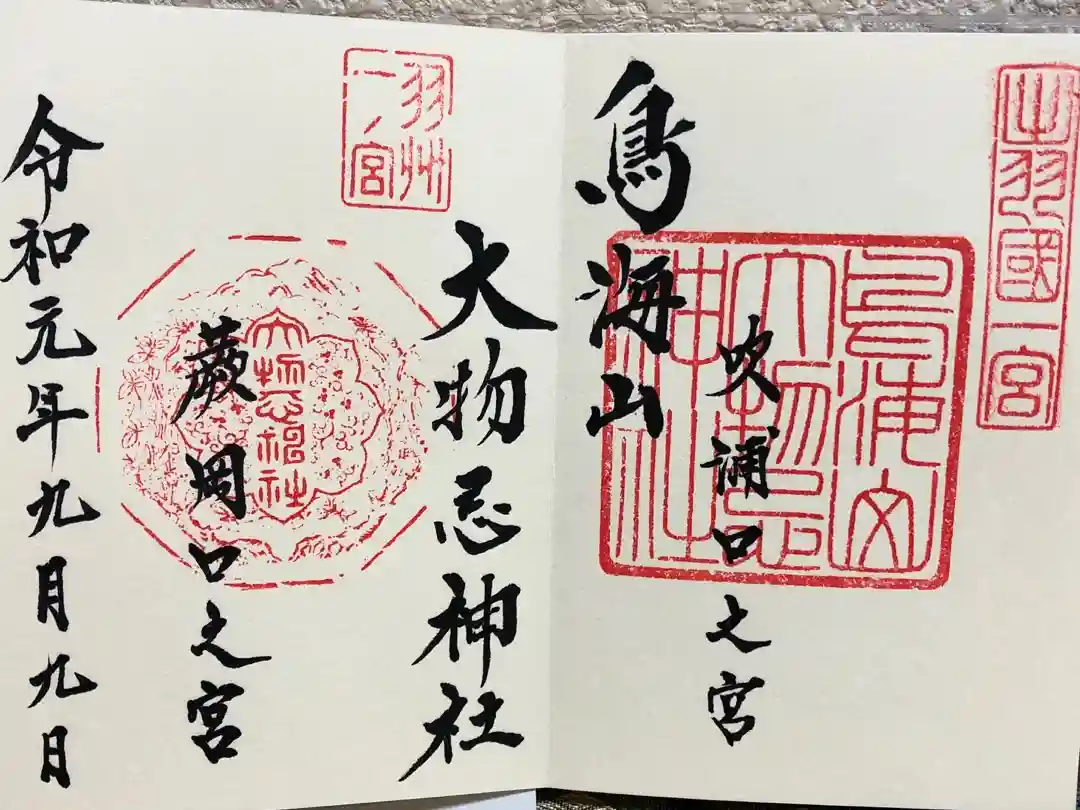 出羽國一宮
鳥海山
大物忌
神社
吹浦口之宮
鳥海山
大物忌神社
羽州
一ノ宮
大物忌神社
蕨岡口之宮
令和元年九月九日